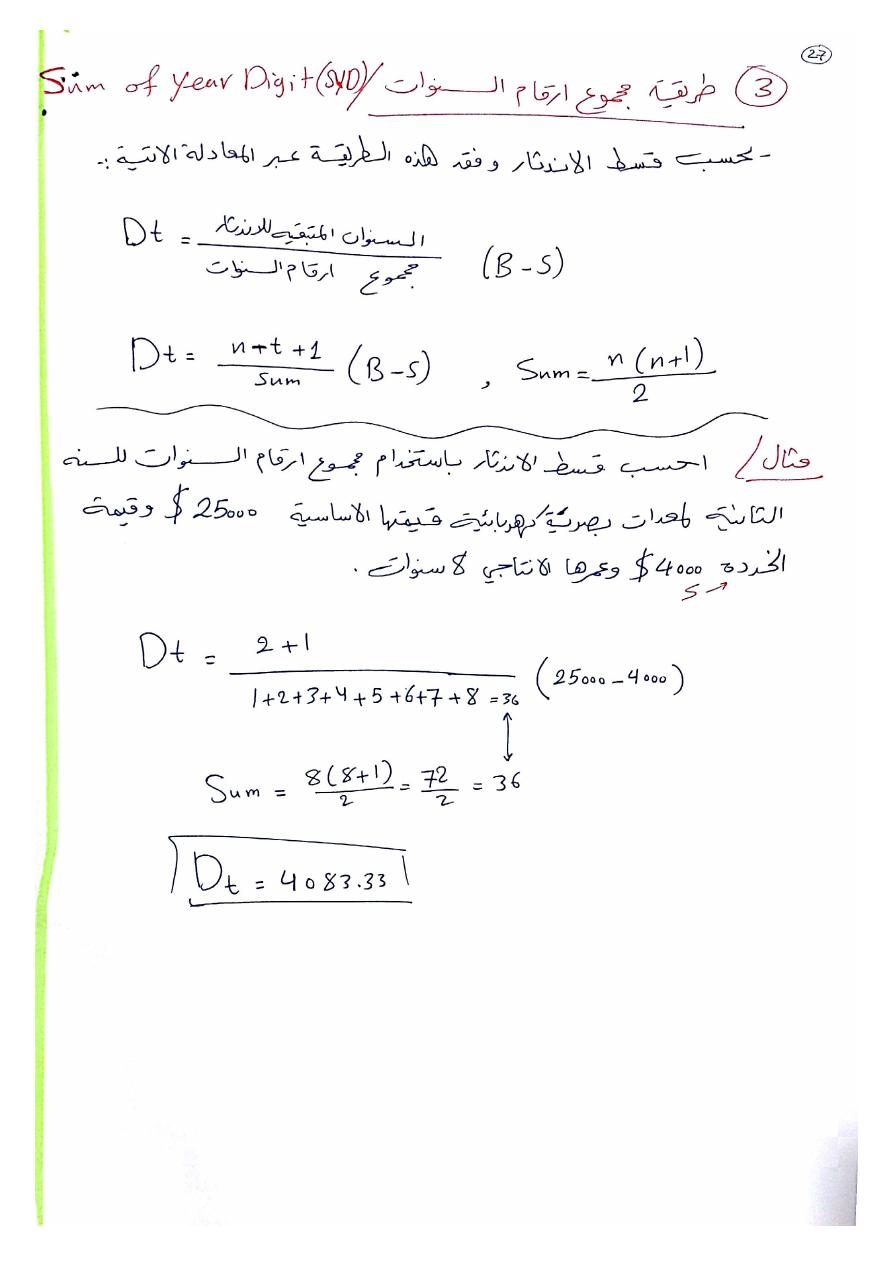 27
3 طريقة مجموع ارقام السنوات / Sum of year Digit (SYD)
- يحسب قسط الاندثار وفقه هذه الطريقة عبر المعادلة الاتية :-
Dt = السنوات المتبقيه للاندثار / مجموع ارقام السنوات (B-S)
Dt = n-t+1 / Sum (B-S) , Sum = n(n+1) / 2
مثال / احسب قسط الاندثار باستخدام مجموع ارقام السنوات للسنه
الثانية لمعدات بصرية/كهربائية قيمتها الاساسية 25000 $ وقيمة
الخردة 4000 $ وعمرها الانتاجي 8 سنوات .
S
Dt = 2+1 / 1+2+3+4+5+6+7+8 = 36 (25000-4000)
Sum = 8(8+1) / 2 = 72 / 2 = 36
Dt = 4083.33